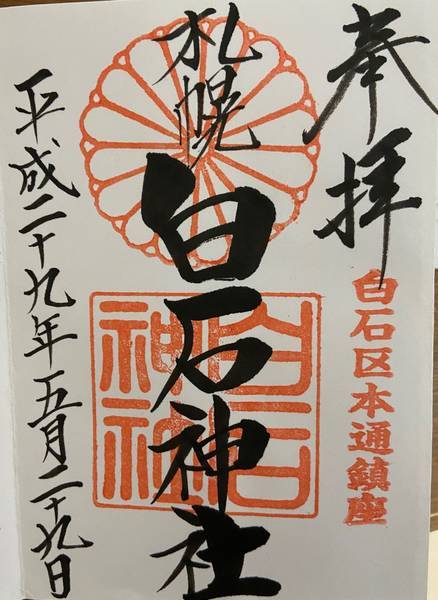 奉拝
白石区本通鎮座
札幌
白石神社
白石
神社
平成二十九年五月二十九日